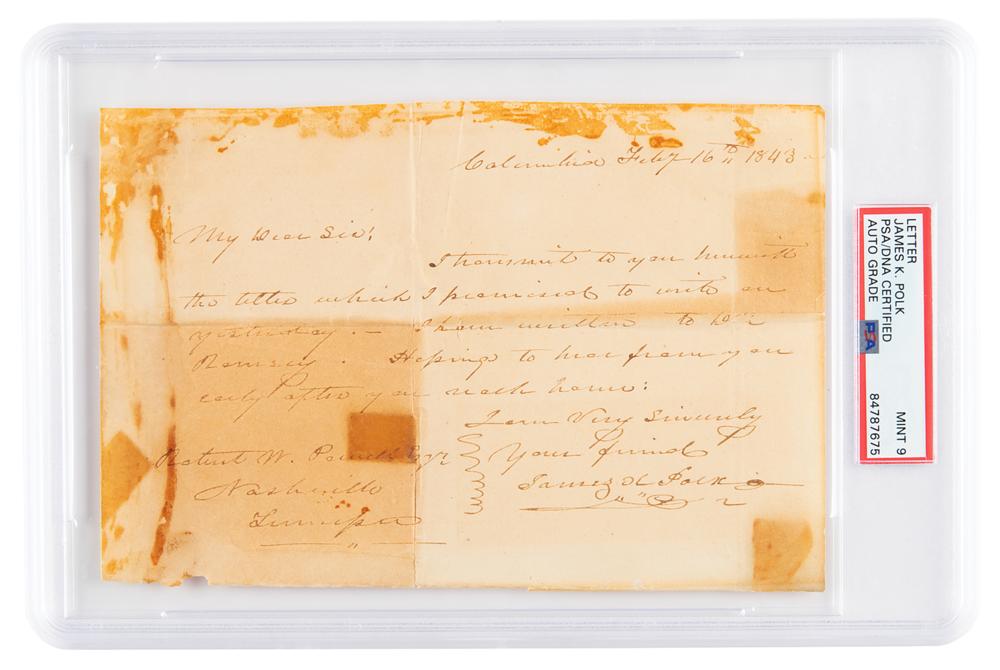 Columbia Feby 16th 1843
My Dear Sir!
I transmit to you herewith
the letter which I promised to write on
yesterday. — I have written to Dr
Ramsey. Hoping to hear from you
early after you reach home:
I am Very Sincerely
Your friend
James K. Polk
Robert W. Powell Esqr
Nashville
Tennessee
LETTER
JAMES K. POLK
PSA/DNA CERTIFIED
AUTO GRADE
PSA
MINT 9
84787675